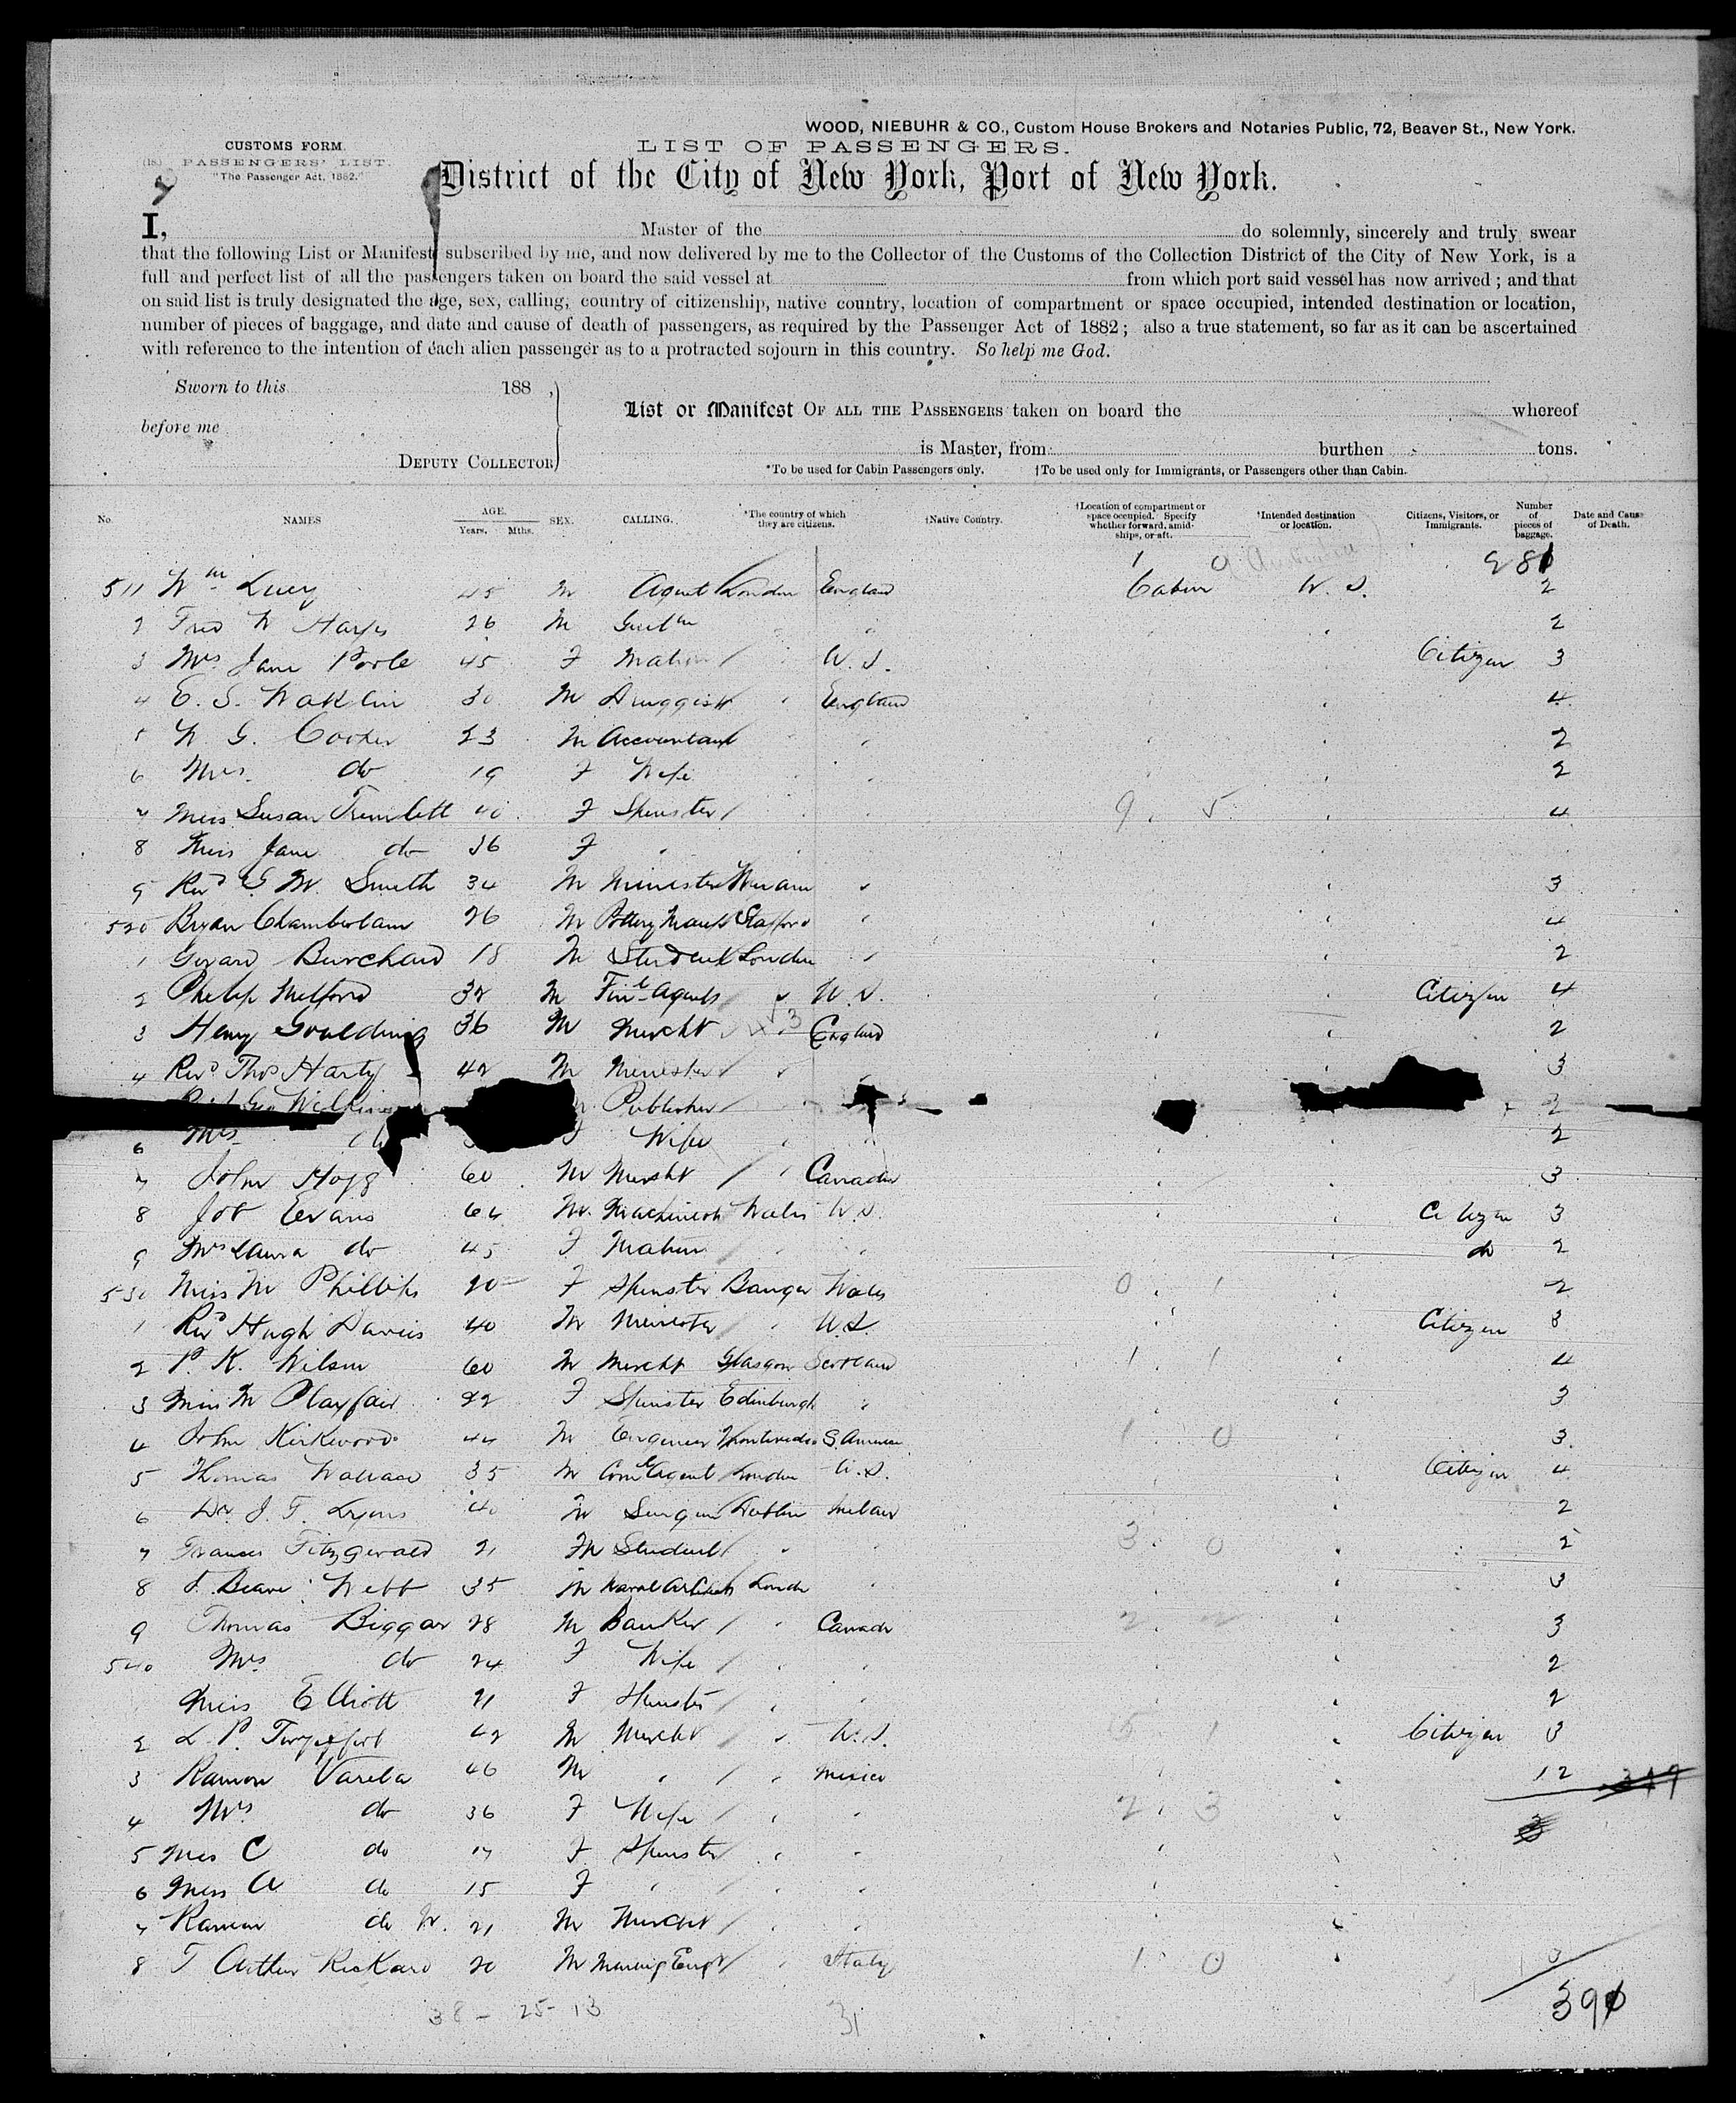 WOOD, NIEBUHR & CO., Custom House Brokers and Notaries Public, 72, Beaver St., New York.
CUSTOMS FORM.
PASSENGERS' LIST.
"The Passenger Act, 1882."
LIST OF PASSENGERS.
District of the City of New York, Port of New York.
I, Master of the do solemnly, sincerely and truly swear
that the following List or Manifest, subscribed by me, and now delivered by me to the Collector of the Customs of the Collection District of the City of New York, is a
full and perfect list of all the passengers taken on board the said vessel at from which port said vessel has now arrived; and that
on said list is truly designated the age, sex, calling, country of citizenship, native country, location of compartment or space occupied, intended destination or location,
number of pieces of baggage, and date and cause of death of passengers, as required by the Passenger Act of 1882; also a true statement, so far as it can be ascertained
with reference to the intention of each alien passenger as to a protracted sojourn in this country. So help me God.
Sworn to this 188 ,
before me
DEPUTY COLLECTOR
List or Manifest OF ALL THE PASSENGERS taken on board the whereof
is Master, from burthen tons.
*To be used for Cabin Passengers only. †To be used only for Immigrants, or Passengers other than Cabin.
No. NAMES AGE. Years. Mths. SEX. CALLING. *The country of which they are citizens. †Native Country. †Location of compartment or space occupied. Specify whether forward, amidships, or aft. *Intended destination or location. Citizens, Visitors, or Immigrants. Number of pieces of baggage. Date and Cause of Death.
1 0 281
511 Wm Lucy 45 M Agent London England Cabin U.S. 2
2 Fred W 26 M Gentn " 2
3 Mrs Jane Poole 45 F Matron U.S. Citizen 3
4 E. S. Waklin 30 M Druggist " England 4
5 W G. Cooker 23 M Accountant " 2
6 Mrs. do 19 F Wife " 2
7 Miss Susan Trimlett 40 F Spinster 9 5 4
8 Miss Jane do 36 F "
9 Revd G W Smith 34 M Minister " 3
520 Bryan Chamberlain 26 M Pottery Manfr Stafford " 4
1 Burchard 18 M Student London " 2
2 Philip Melford 32 M Finl Agent " U.S. Citizen 4
3 Henry Goulding 36 M Mercht " England 2
4 Revd Thos Harty 42 M Minister " 3
Geo Wilkins Publisher 2
6 Mrs F Wife " 2
7 John Hogg 60 M Mercht " Canada 3
8 Job Evans 64 M Machinist Wales U.S. Citizen 3
9 Mrs Laura do 45 F Matron " do 2
530 Miss M Phillips 20 F Spinster Bangor Wales 0 1 2
1 Revd Hugh Davies 40 M Minister " U.S. Citizen 3
2 P. K. Wilson 60 M Mercht Glasgow Scotland 1 1 4
3 Miss M Playfair 22 F Spinster Edinburgh " 3
4 John Kirkwood 44 M Engineer Montevideo S. America 1 0 3
5 Thomas Wallace 35 M Coml Agent London U.S. Citizen 4
6 Dr. J. F. Lyons 40 M Surgeon Dublin Ireland 2
7 Francis Fitzgerald 21 M Student " 3 0 2
8 J. Beavor Webb 35 M Naval Architect London " 3
9 Thomas Biggar 28 M Banker " Canada 2 2 3
540 Mrs do 24 F Wife " 2
Miss Elliott 21 F Spinster " 2
2 L. P. 42 M Mercht " U.S. 5 1 Citizen 3
3 Ramon Varela 46 M " " Mexico 12 347
4 Mrs do 36 F Wife " 2 3 3
5 Miss C do 17 F Spinster "
6 Miss A do 15 F " "
7 Ramon do 21 M Mercht "
8 T Arthur Rickard 20 M Mining Engr " Italy 1 0 3
38 - 25 - 13 31 390